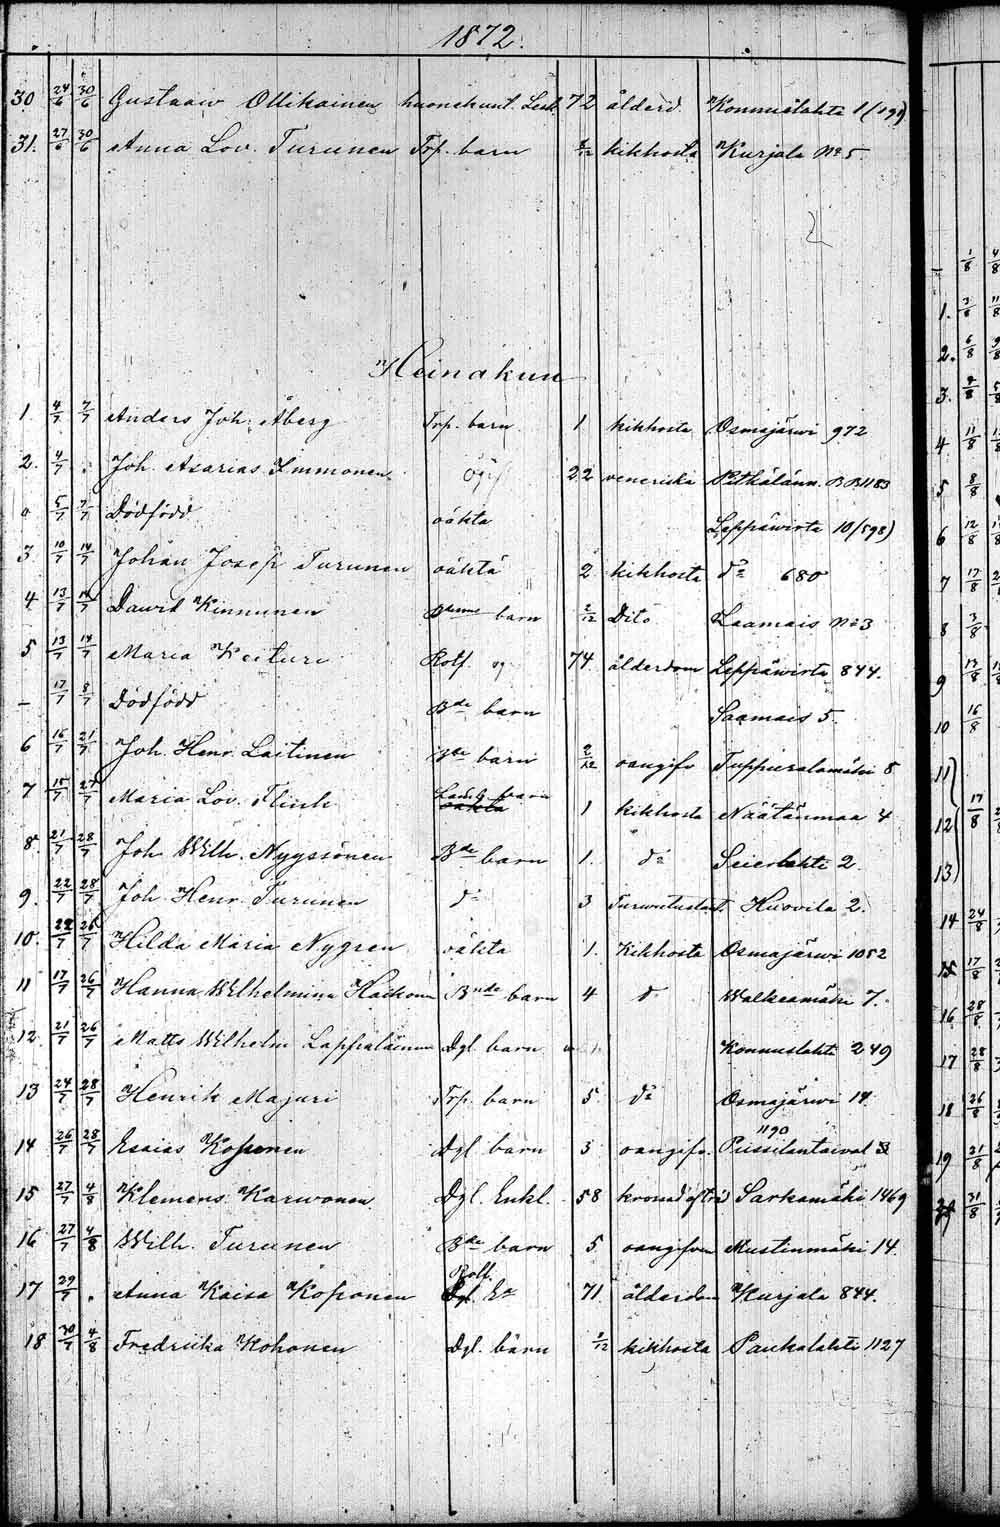 1872.
30 24/6 30/6 Gustaaw Ollikainen huonehunt. Lesk. 72 ålderd. Konnuslahti 1/(199)
31. 27/6 30/6 Anna Lov. Turunen Trp. barn /12 kikhosta Kurjala No 5
Heinakun
1. 4/7 7/7 Anders Joh. Åberg Trp. barn 1 kikhosta Osmajärwi 972
2. 4/7 . Joh. Asarias Immonen ogif 22 veneriska Pitkälänn. B 1183
0 5/7 7/7 Dödfödd oäkta Leppäwirta 10/598)
3 10/7 14/7 Johan Josef Turunen oäkta 2 kikhosta do 680
4 13/7 14/7 Dawid Kinnunen barn 2/12 Dito Saamais No 3
5 13/7 14/7 Maria Keituri Rotf. 74. ålderdom Leppäwirta 844.
– 17/7 8/7 Dödfödd Bde barn Saamais 5.
6 16/7 21/7 Joh. Henr. Laitinen Bde barn 2/12 oangifv Tuppuralamäki 8
7 15/7 27/7 Maria Lov. Flink barn 1 kikhosta Näätänmaa 4
8. 21/7 28/7 Joh. Wilh. Nyyssönen Bde barn 1. do Seierlahti 2.
9. 22/7 28/7 Joh. Henr. Turunen do 3 Turwutustaut. Huovila 2.
10. 22/7 26/7 Hilda Maria Nygren oäkta 1. Kikhosta Osmajärwi 1052
11 17/7 26/7 Hanna Wilhelmina Haikonen Bnde barn 4 d Walkeamäki 7.
12. 21/7 26/7 Matts Wilhelm Lappalainen Dgl. barn Konnuslahti 249
13 24/7 28/7 Henrik Majuri Trp. barn 5 do Osmajärwi 14
14 26/7 28/7 Esaias Koponen Dgl. barn 3 oangifv. Pussilantaival 1190
15 27/7 4/8 Klemens Karwonen Dgl. Enkl. 58 Sarkamäki 1469
16 27/7 4/8 Wilh. Turunen Bde barn 5 oangifven Mustinmäki 14.
17 29/7 . Anna Kaisa Koponen Rotf. Ea 71 ålderdom Kurjala 844.
18 30/7 4/8 Fredriika Kohonen Dgl. barn /12 kikhosta Paukalahti 1127
– 1/8 4/8
1. 3/8 11/8
2. 6/8 9/8
3. 8/8
4 11/8
5 8/8
6 12/8
7 17/8
8 3/8
9 13/8
10 16/8
11)
12 17/8
13)
14 24/8
15 17/8
16 28/8
17 28/8
18 26/8
19 21/8
31/8